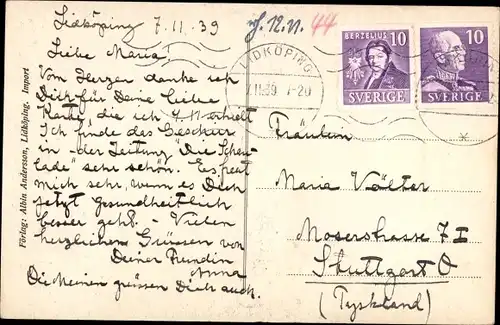 Lidköping 7.11.39
Liebe Maria!
Von Herzen danke ich
Dich für Deine liebe
Karte, die ich erhielt
Ich finde das
in der Zeitung "Die
lade" sehr schön. Es freut
mich sehr, wenn es Dich
jetzt gesundheitlich
besser geht. - Vielen
herzlichen Grüssen von
Deiner Freundin
Anna
Die Meinen grüssen Dich auch.
Förlag: Albin Andersson, Lidköping. Import
12.11. 44
LIDKÖPING
7.11.39 7-20
BERZELIUS 10
SVERIGE
10
SVERIGE
*
Fräulein
Maria Völter
Moserstrasse 7 I
Stuttgart O
(Tyskland)